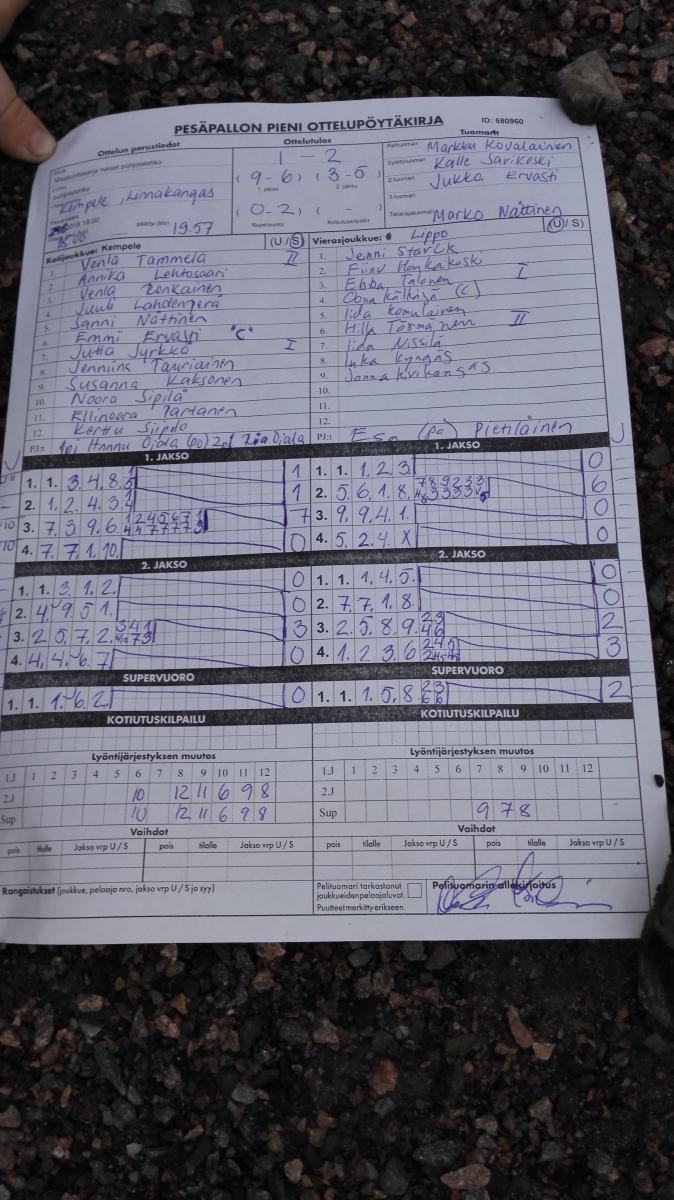 PESÄPALLON PIENI OTTELUPÖYTÄKIRJA ID: 580960
Ottelun perustiedot Ottelutulos Tuomarit
1 - 2
(9-6) (3-5)
1. jakso 2. jakso
(0-2) ( - )
Supervuoro Kotiutuskilpailu
Kempele, Linnakangas
18:00
19.57
Pelituomari Markku Kovalainen
Syöttötuomari Kalle Sarikoski
2-tuomari Jukka Ervasti
3-tuomari
Takarajatuomari Marko Nättinen
Kotijoukkue: Kempele (U / S)
1. Venla Tammela II
2. Annika Lehtosaari
3. Venla Ronkainen
4. Juuli Lahdenperä
5. Sanni Nättinen
6. Emmi Ervasti "C"
7. Jutta Jyrkkö I
8. Jenniina Tauriainen
9. Susanna Kaksonen
10. Noora Sipilä
11. Ellinoora Tartanen
12. Kerttu Siipola
PJ:t 1pj Hannu Ojala (po) Ojala
Vierasjoukkue: Lippo (U / S)
1. Jenni Starck
2. Honkakoski
3. Ebba Talonen I
4. Oona (C)
5. Iida Komulainen
6. Hilla Tormänen II
7. Iida Nissilä
8. Inka Kyngäs
9. Jonna Kvikangas
10.
11.
12.
PJ:t (pc) Pietiläinen
1. JAKSO
1. 1. 3. 4. 8. 1
2. 1. 2. 4. 3. 1
3. 7. 3. 9. 6. 7
4. 7. 7. 1. 10. 0
1. JAKSO
1. 1. 1. 2. 3 0
2. 5. 6. 1. 8. 6
3. 9. 9. 4. 1. 0
4. 5. 2. 4. X 0
2. JAKSO
1. 1. 3. 1. 2. 0
2. 4. 9. 5. 1. 0
3. 2. 5. 7. 2. 3
4. 4. 4. 6. 7 0
2. JAKSO
1. 1. 1. 4. 5. 0
2. 7. 7. 1. 8. 0
3. 2. 5. 8. 9. 2
4. 1. 2. 3. 6 3
SUPERVUORO
1. 1. 1. 6. 2. 0
SUPERVUORO
1. 1. 1. 5. 8 2
KOTIUTUSKILPAILU
KOTIUTUSKILPAILU
Lyöntijärjestyksen muutos
1.J 1 2 3 4 5 6 7 8 9 10 11 12
2.J 10 12 11 6 9 8
Sup 10 12 11 6 9 8
Lyöntijärjestyksen muutos
1.J 1 2 3 4 5 6 7 8 9 10 11 12
2.J
Sup 9 7 8
Vaihdot
pois tilalle Jakso vrp U / S pois tilalle Jakso vrp U / S
Vaihdot
pois tilalle Jakso vrp U / S pois tilalle Jakso vrp U / S
Rangaistukset (joukkue, pelaaja nro, jakso vrp U / S ja syy)
Pelituomari tarkastanut
joukkueiden pelaajaluvat.
Puutteet merkitty erikseen.
Pelituomarin allekirjoitus